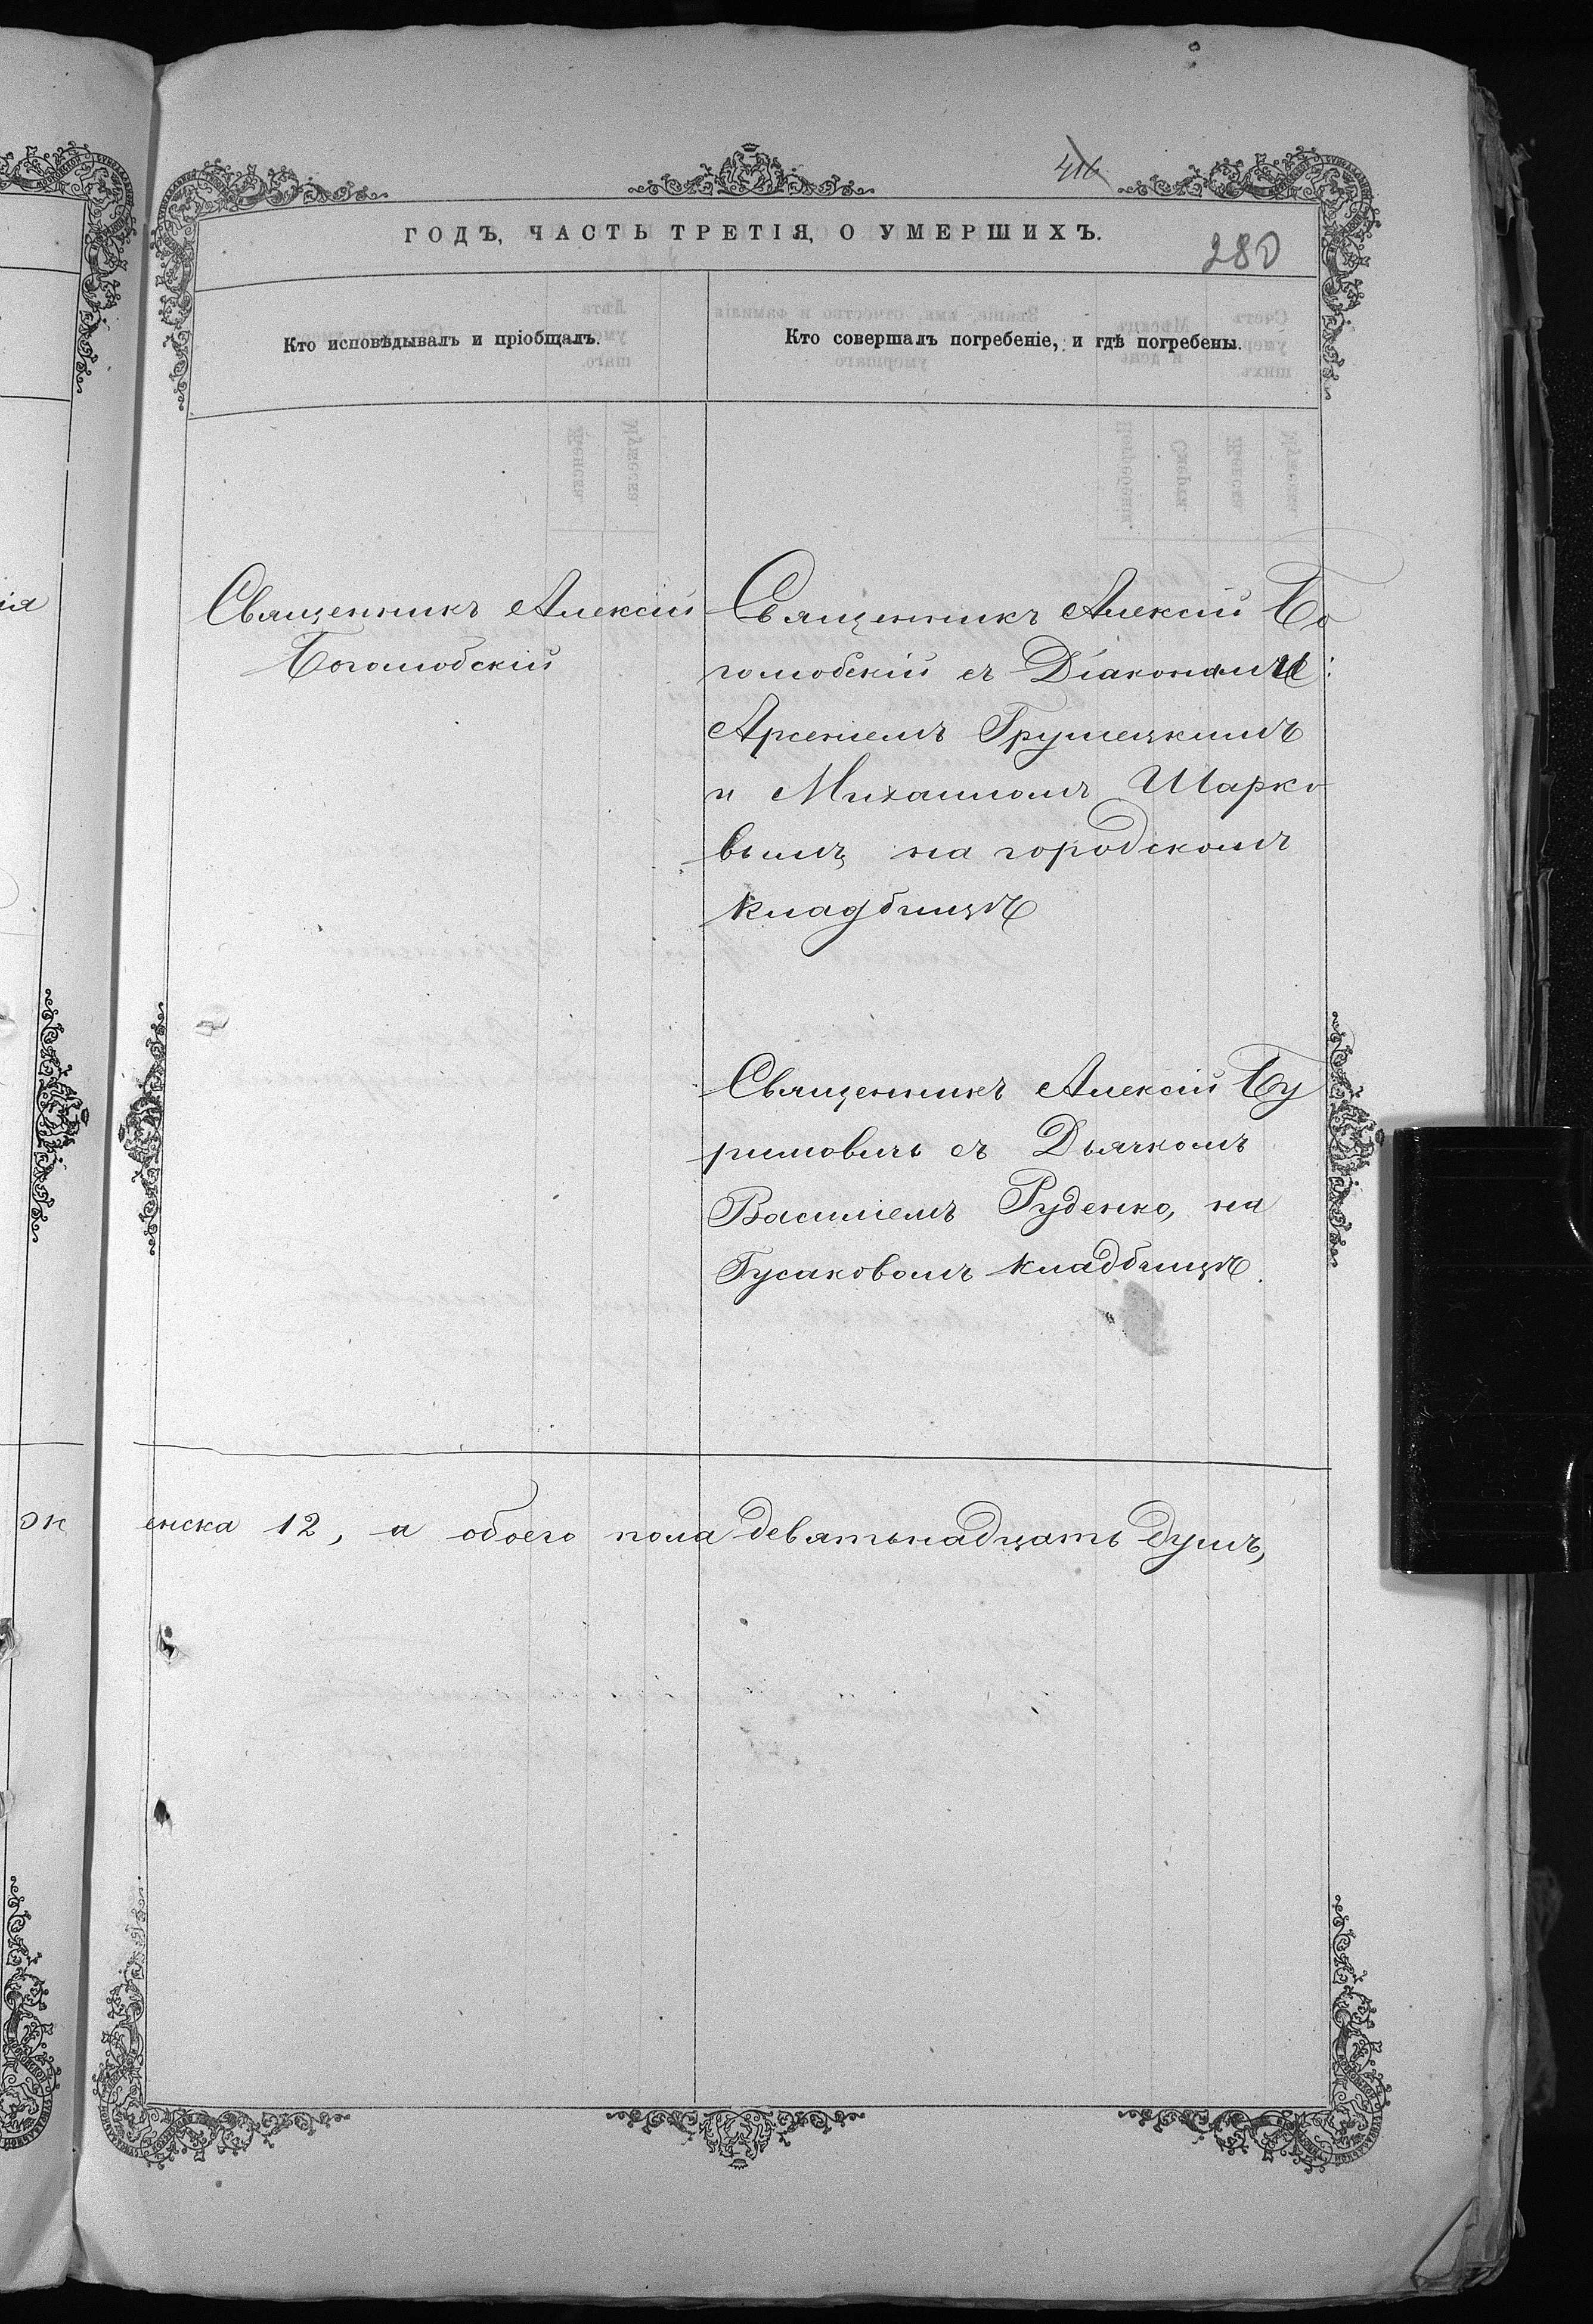 416
ГОДЪ, ЧАСТЬ ТРЕТІЯ, О УМЕРШИХЪ.
280
Кто исповѣдывалъ и пріобщалъ.
Кто совершалъ погребеніе, и гдѣ погребены.
Священникъ Алексій
Боголюбскій
Священникъ Алексій Бо
голюбскій съ Діаконами:
Арсеніемъ Грушецкимъ
и Михаиломъ Шарко
вымъ, на городскомъ
кладбищѣ
Священникъ Алексій Бу
римовичь съ Дьячкомъ
Василіемъ Руденко, на
Гусаковомъ кладбищѣ.
енска 12, а обоего пола девятьнадцать душъ,